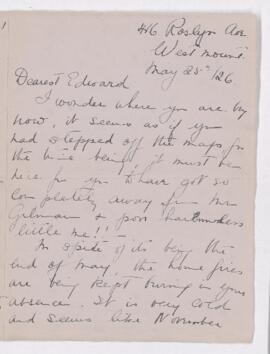 416 Roslyn Ave
Westmount.
May 25th/26.
Dearest Edward
I wonder where you are by
now, it seems as if you
had stepped off the maps for
the time being! it must be
nice for you to have got so
completely away from Mr
Gilman & poor harmless
little me!!
In spite of its being the
end of May, the home fires
are being kept burning in your
absence. It is very cold
and seems like November